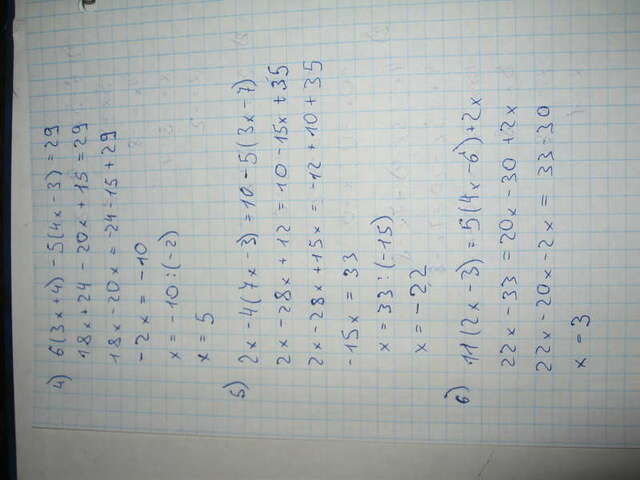 4) 6(3x+4) - 5(4x-3) = 29
18x+24 - 20x + 15 = 29
18x - 20x = -24 - 15 + 29
-2x = -10
x = -10 : (-2)
x = 5
5) 2x - 4(7x - 3) = 10 - 5(3x - 7)
2x - 28x + 12 = 10 - 15x + 35
2x - 28x + 15x = -12 + 10 + 35
-15x = 33
x = 33 : (-15)
x = -2,2
6) 11(2x - 3) = 5(4x - 6) + 2x
22x - 33 = 20x - 30 + 2x
22x - 20x - 2x = 33 - 30
x = 3